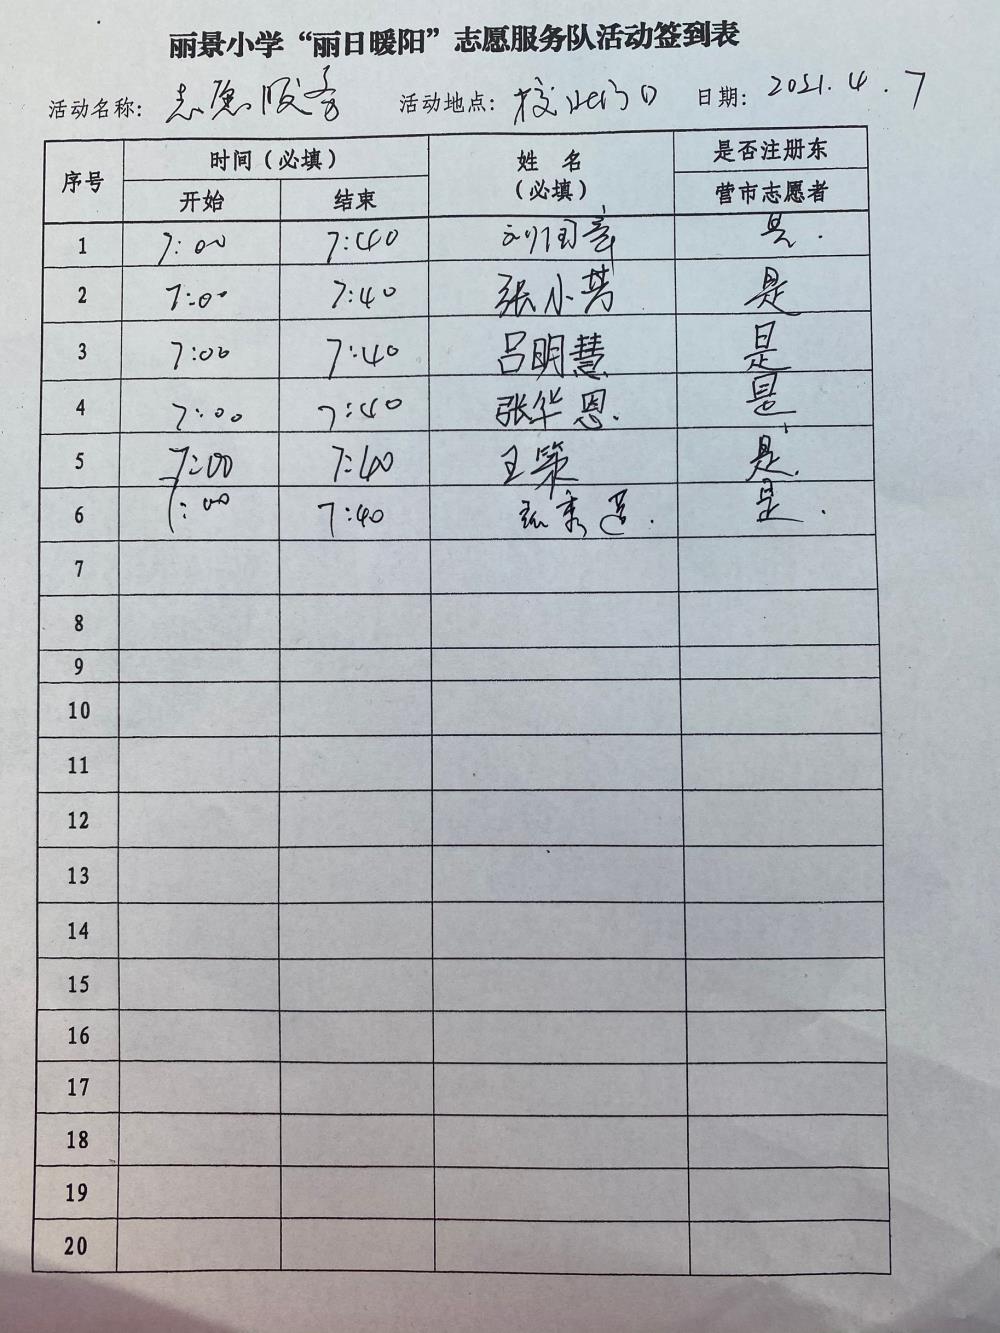 丽景小学“丽日暖阳”志愿服务队活动签到表
活动名称: 志愿服务 活动地点: 校北门口 日期: 2021.4.7
序号 时间（必填） 姓 名 （必填） 是否注册东营市志愿者
开始 结束
1 7:00 7:40 刘国 是.
2 7:00 7:40 张小芳 是
3 7:00 7:40 吕明慧 是
4 7:00 7:40 张华恩. 是
5 7:00 7:40 王策 是.
6 7:00 7:40 秀莲. 是.
7
8
9
10
11
12
13
14
15
16
17
18
19
20